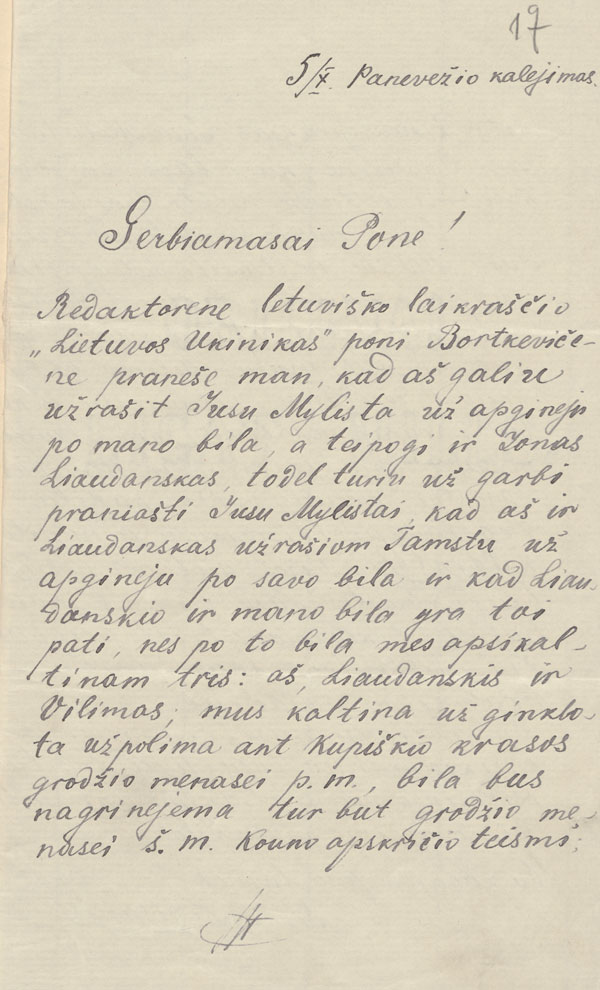 17
5/X. Panevežio kalejimas.
Gerbiamasai Pone!
Redaktorene letuviško laikraščio
„Lietuvos Ukinikas" poni Bortkeviče-
ne praneše man, kad aš galiu
užrašit Jusu Mylista už apgineju
po mano bila, a teipogi ir Jonas
Liaudanskas, todel turiu už garbi
praniašti Jusu Mylistai, kad aš ir
Liaudanskas užrašiom Tamstu už
apgineju po savo bila ir kad Liau-
danskio ir mano bila yra toi
pati, nes po to bila mes apsikal-
tinam tris: aš, Liaudanskis ir
Vilimas; mus kaltina už ginklo-
ta užpolima ant Kupiškio krasos
grodžio menasei p. m., bila bus
nagrinejema tur but grodžio me-
nasei š. m. Kouno apskričio teismi;